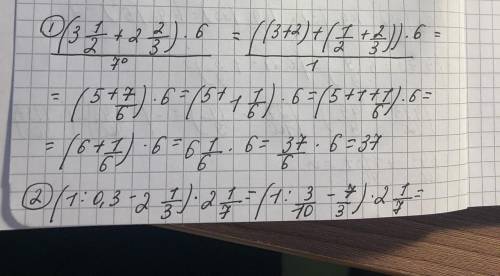 ① (3 1/2 + 2 2/3) · 6 / 7° = ((3+2) + (1/2 + 2/3)) · 6 / 1 =
= (5 + 7/6) · 6 = (5 + 1 1/6) · 6 = (5 + 1 + 1/6) · 6 =
= (6 + 1/6) · 6 = 6 1/6 · 6 = 37/6 · 6 = 37
② (1 : 0,3 - 2 1/3) · 2 1/7 = (1 : 3/10 - 7/3) · 2 1/7 =